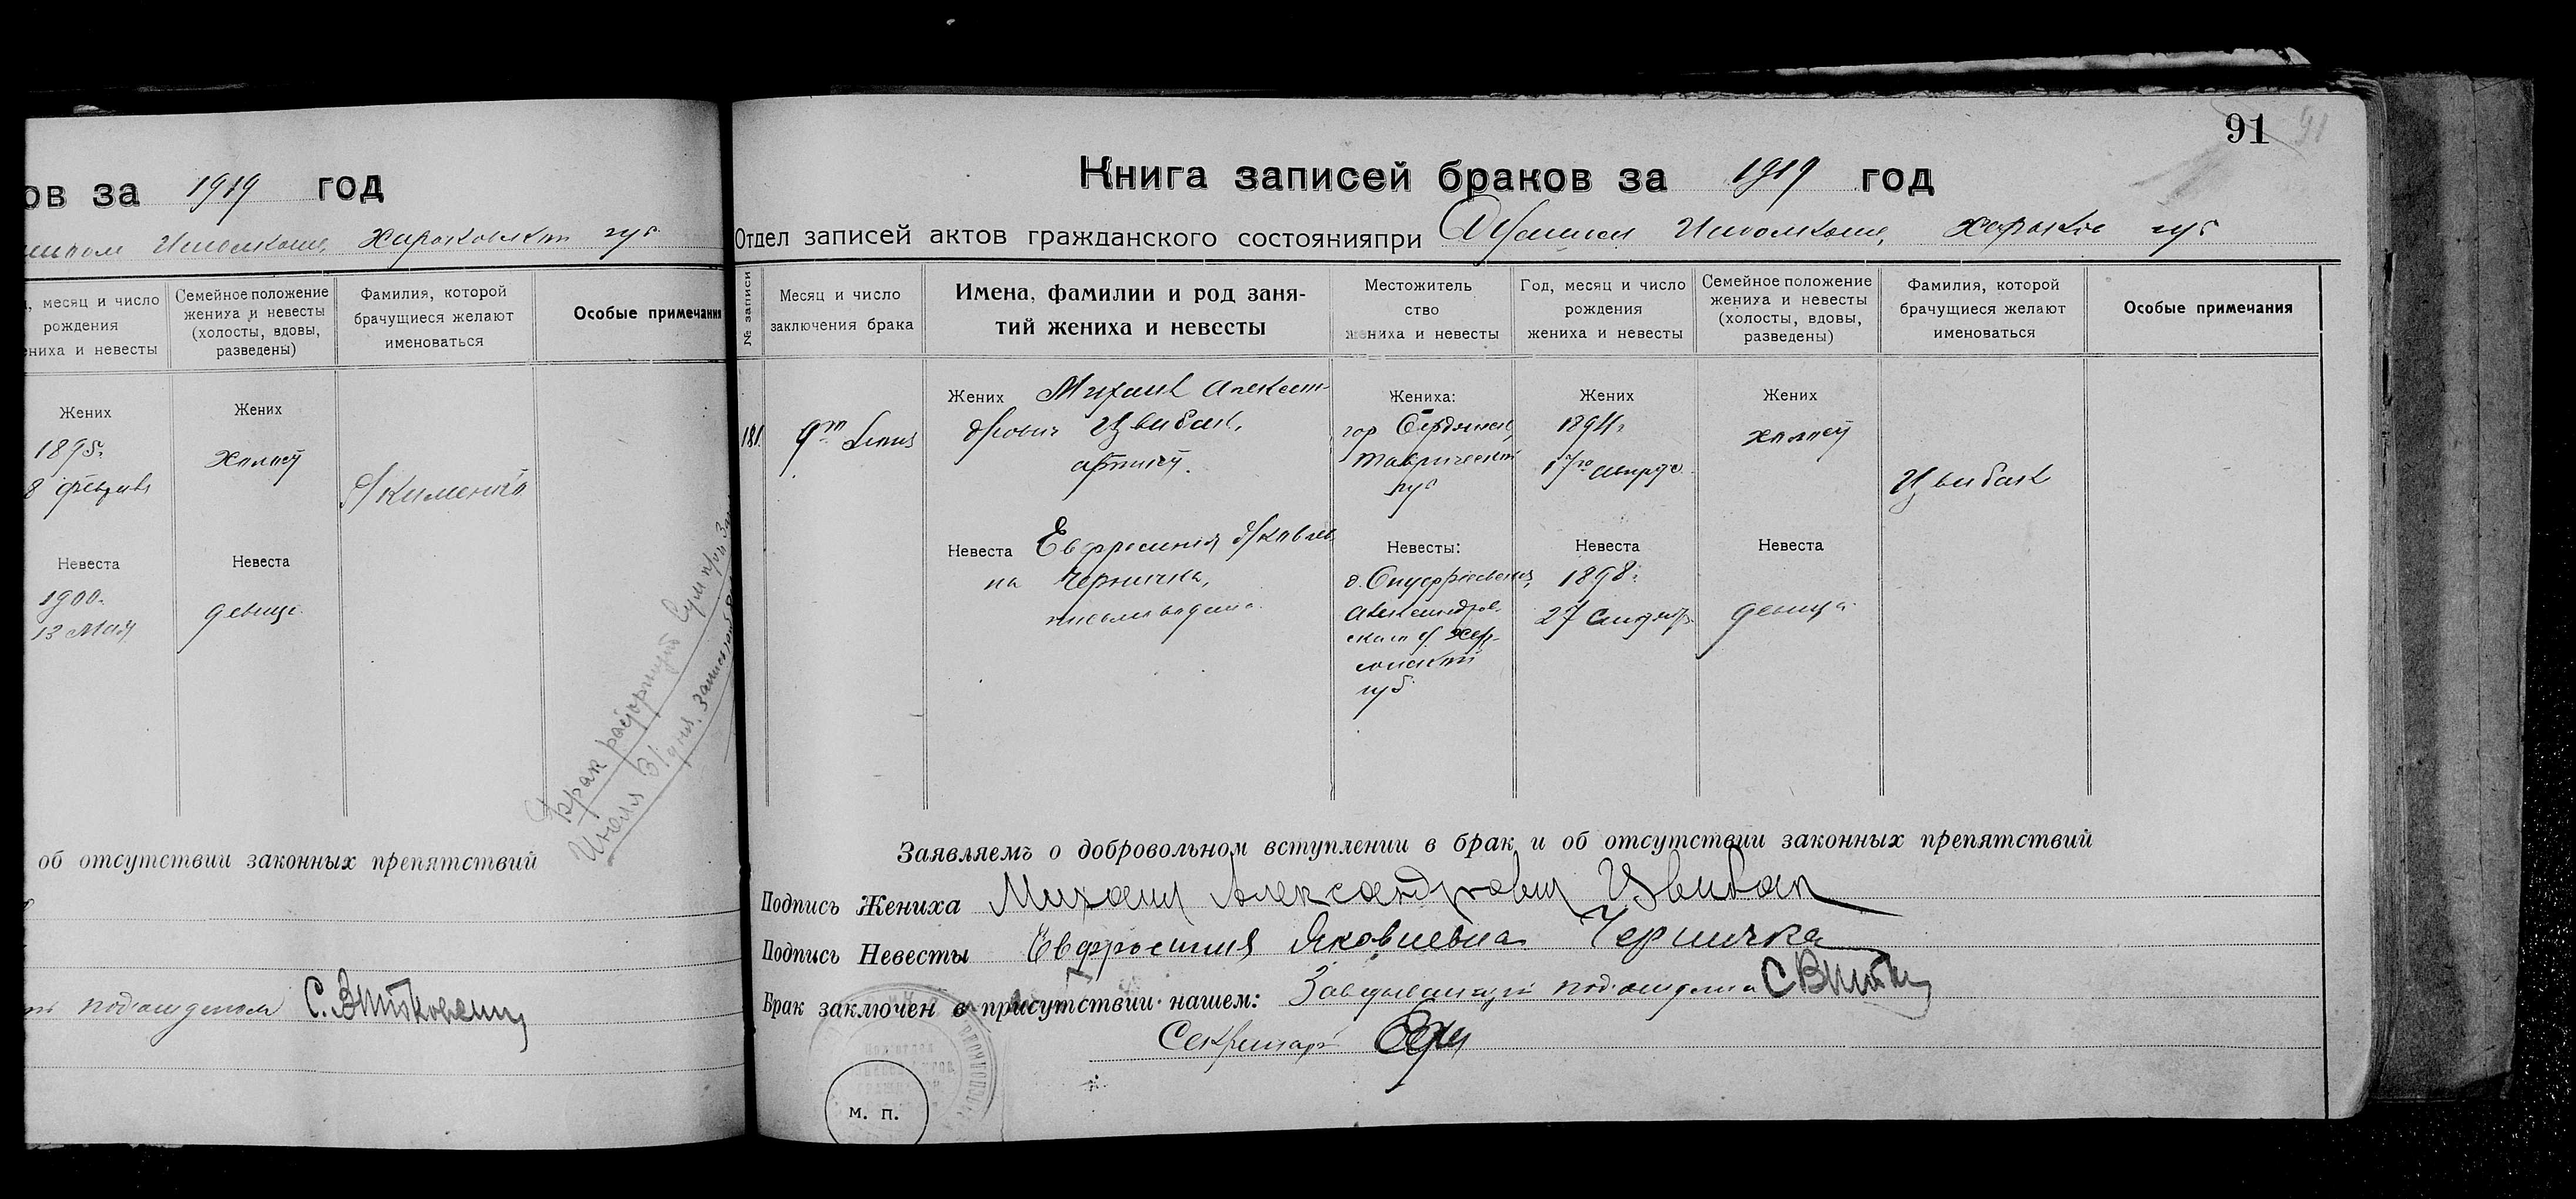 ов за 1919 год
Харьковской губ
месяц и число
рождения
ниха и невесты
Семейное положение
жениха и невесты
(холосты, вдовы,
разведены)
Фамилия, которой
брачущиеся желают
именоваться
Особые примечания
Жених
1895 г.
8 февраля
Жених
холост
Якименко
Невеста
1900
13 Мая
Невеста
девица
Брак расторгнут
Июля 31 дня.
об отсутствии законных препятствий
подотделом
91
91
Книга записей браков за 1919 год
Отдел записей актов гражданского состояния при Исполкоме, Харьков губ
№ записи
Месяц и число
заключения брака
Имена, фамилии и род заня-
тий жениха и невесты
Местожитель
ство
жениха и невесты
Год, месяц и число
рождения
жениха и невесты
Семейное положение
жениха и невесты
(холосты, вдовы,
разведены)
Фамилия, которой
брачущиеся желают
именоваться
Особые примечания
181
9го
Жених Михаил Алексан-
дрович Цвибак,
артист.
Жениха:
гор Бердянск,
Таврической
губ
Жених
1894 г.
17го
Жених
холост
Цвибак
Невеста Евфросиния Яковлев
на Черничка,
Невесты:
Александров-
ского у Хер-
сонской
губ
Невеста
1898 г.
27
Невеста
девица
Заявляемъ о добровольном вступлении в брак и об отсутствии законных препятствий
Подпись Жениха Михаил Александрович Цвибак
Подпись Невесты Евфросиния Яковлевна Черничка
Брак заключен в присутствии нашем: Заведывающий подотделом
Секретарь
м. п.